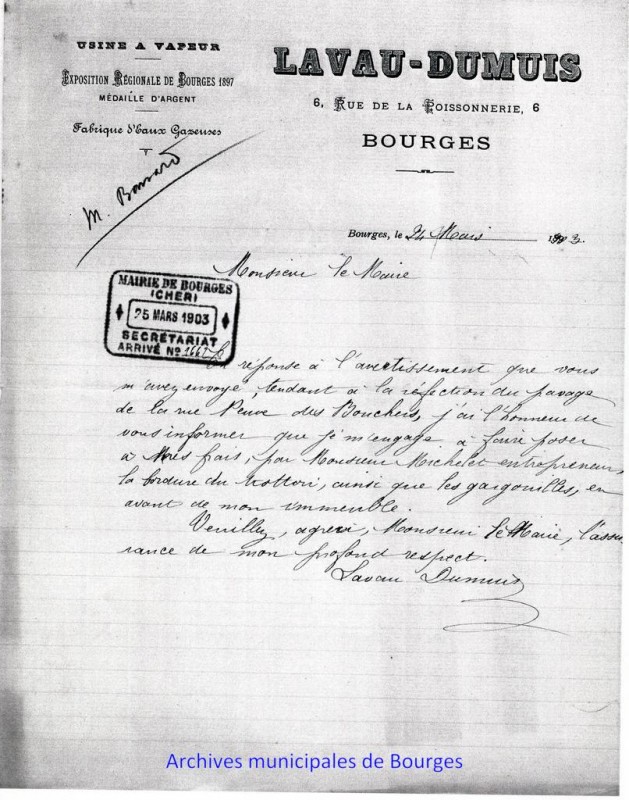 USINE A VAPEUR
EXPOSITION RÉGIONALE DE BOURGES 1897
MÉDAILLE D'ARGENT
Fabrique d'Eaux Gazeuses
LAVAU-DUMUIS
6, RUE DE LA POISSONNERIE, 6
BOURGES
M.
Bourges, le 24 Mars 1903
Monsieur le Maire
MAIRIE DE BOURGES
(CHER)
25 MARS 1903
SECRÉTARIAT
ARRIVÉ No
En réponse à l'avertissement que vous
m'avez envoyé, tendant à la réfection du pavage
de la rue Neuve des Bouchers, j'ai l'honneur de
vous informer que je m'engage à faire poser
à mes frais, par Monsieur Michelet entrepreneur,
la bordure du trottoir, ainsi que les gargouilles, en
avant de mon immeuble.
Veuillez, agréer, Monsieur le Maire, l'assu
rance de mon profond respect.
Lavau Dumuis
Archives municipales de Bourges